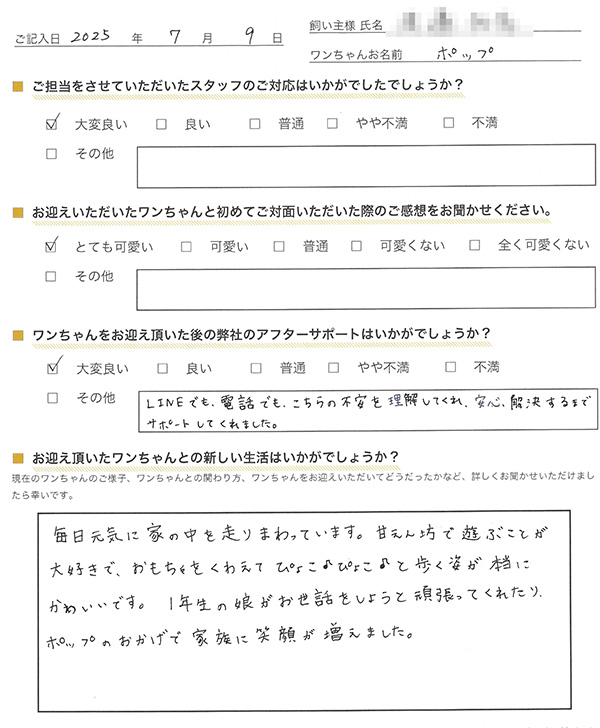 ご記入日 2025 年 7 月 9 日
飼い主様 氏名
ワンちゃんお名前 ポップ
■ ご担当をさせていただいたスタッフのご対応はいかがでしたでしょうか？
☑ 大変良い □ 良い □ 普通 □ やや不満 □ 不満
□ その他
■ お迎えいただいたワンちゃんと初めてご対面いただいた際のご感想をお聞かせください。
☑ とても可愛い □ 可愛い □ 普通 □ 可愛くない □ 全く可愛くない
□ その他
■ ワンちゃんをお迎え頂いた後の弊社のアフターサポートはいかがでしょうか？
☑ 大変良い □ 良い □ 普通 □ やや不満 □ 不満
□ その他
LINEでも、電話でも、こちらの不安を理解してくれ、安心、解決するまで
サポートしてくれました。
■ お迎え頂いたワンちゃんとの新しい生活はいかがでしょうか？
現在のワンちゃんのご様子、ワンちゃんとの関わり方、ワンちゃんをお迎えいただいてどうだったかなど、詳しくお聞かせいただけまし
たら幸いです。
毎日元気に家の中を走りまわっています。甘えん坊で遊ぶことが
大好きで、おもちゃをくわえてぴょこ♪ぴょこ♪と歩く姿が本当に
かわいいです。1年生の娘がお世話をしようと頑張ってくれたり、
ポップのおかげで家族に笑顔が増えました。